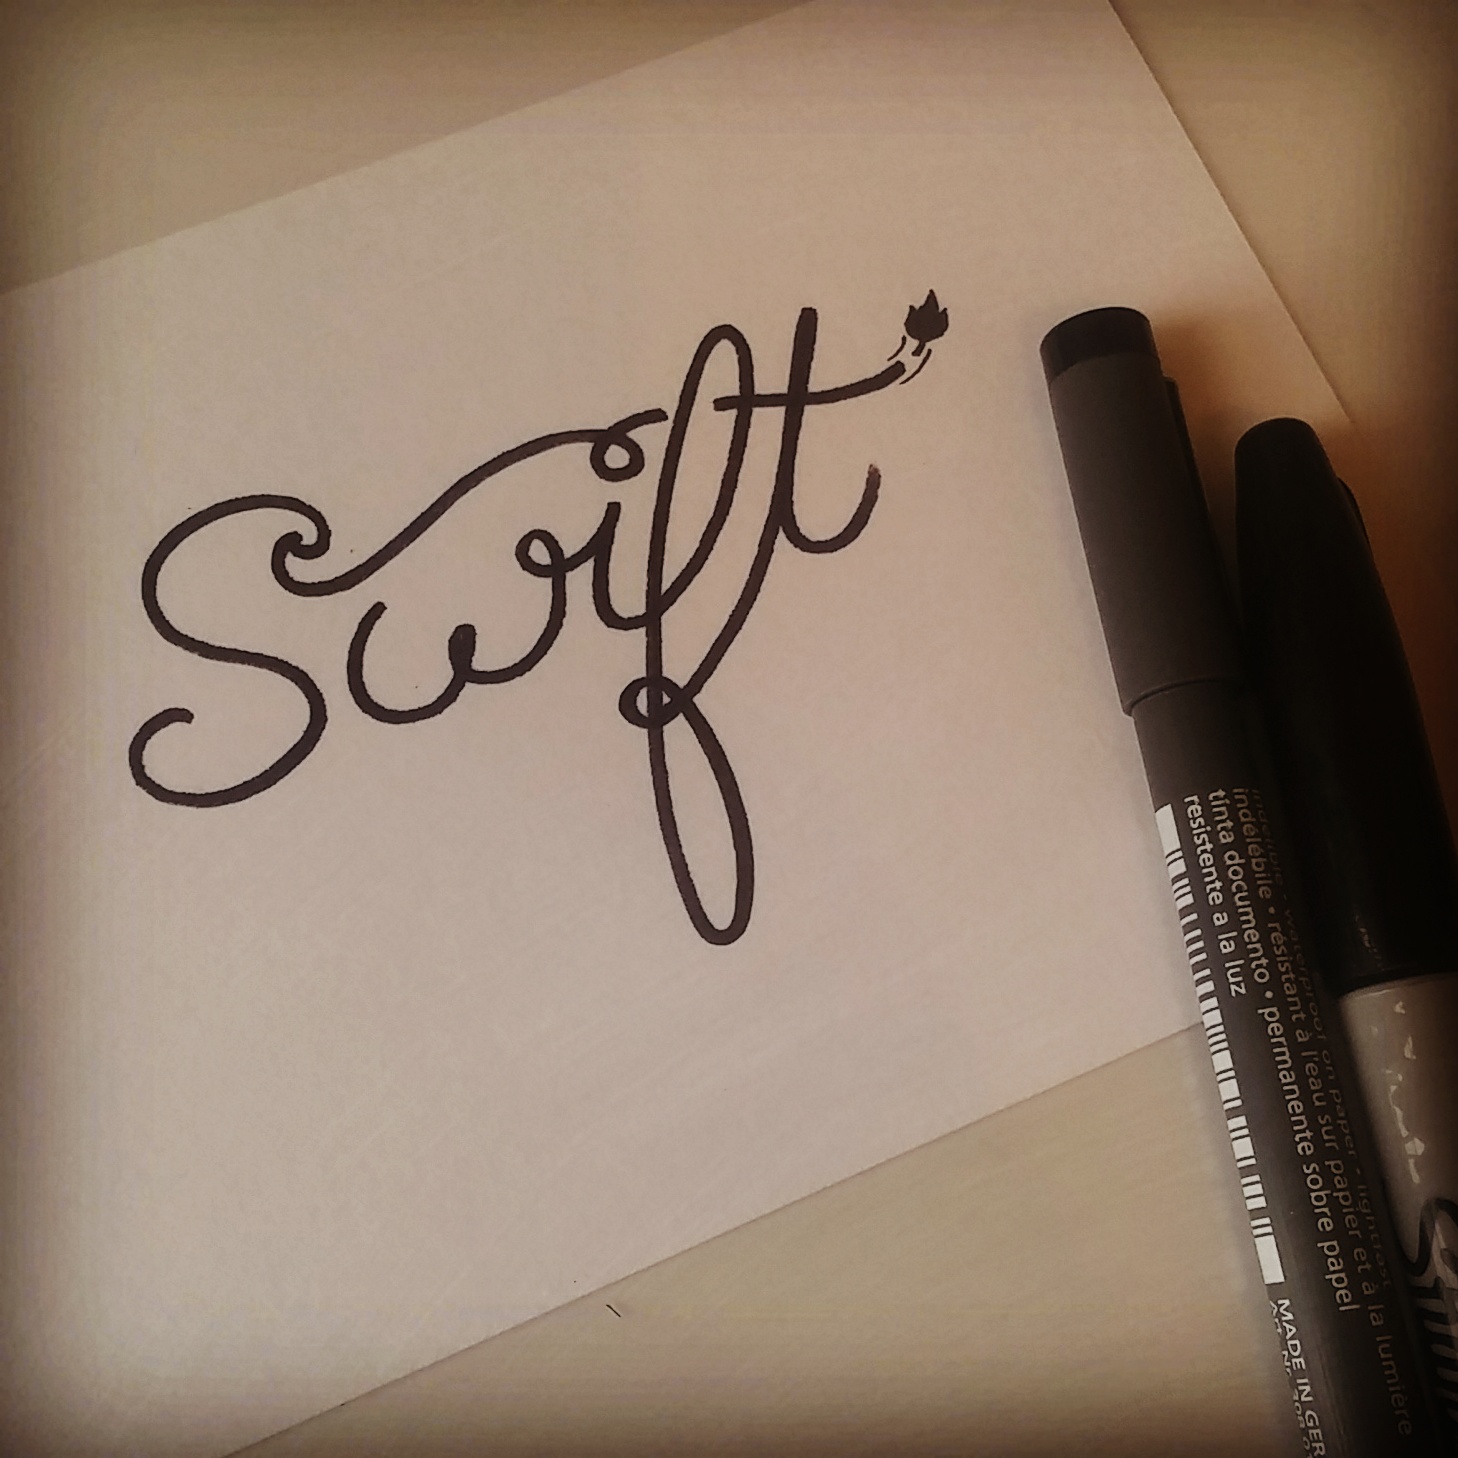 Swift
indélébile • résistant à l'eau sur papier et à la lumière
tinta documento • permanente sobre papel
resistente a la luz
MADE IN GER